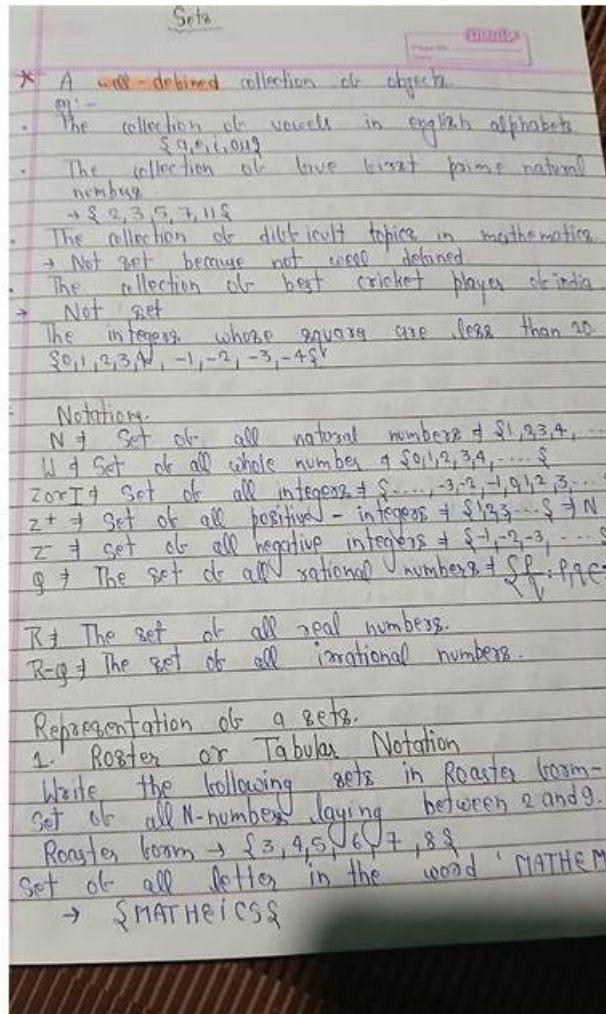 Sets
* A well-defined collection of objects
eg:-
. The collection of vowels in english alphabets
{a,e,i,o,u}
. The collection of five first prime natural
numbers
→ { 2, 3, 5, 7, 11 }
. The collection of difficult topics in mathematics.
→ Not set because not well defined
. The collection of best cricket player of india
→ Not set
The integers whose square are less than 20.
{0,1,2,3,4, -1,-2,-3,-4}
Notation.
N → Set of all natural numbers → {1,2,3,4, ...
W → Set of all whole number → {0,1,2,3,4, .... }
Z or I → Set of all integers → {...., -3,-2,-1,0,1,2,3....
Z+ → Set of all positive - integers → {1,2,3... } → N
Z- → set of all negative integers → {-1,-2,-3, .... }
Q → The set of all rational numbers → {p/q : p,q ∈
R → The set of all real numbers.
R-Q → The set of all irrational numbers.
Representation of a sets.
1. Roster or Tabular Notation
Write the following sets in Roaster form-
Set of all N-numbers laying between 2 and 9.
Roaster form → {3, 4, 5, 6, 7, 8}
Set of all letter in the word 'MATHEM
→ {MATHEICS}